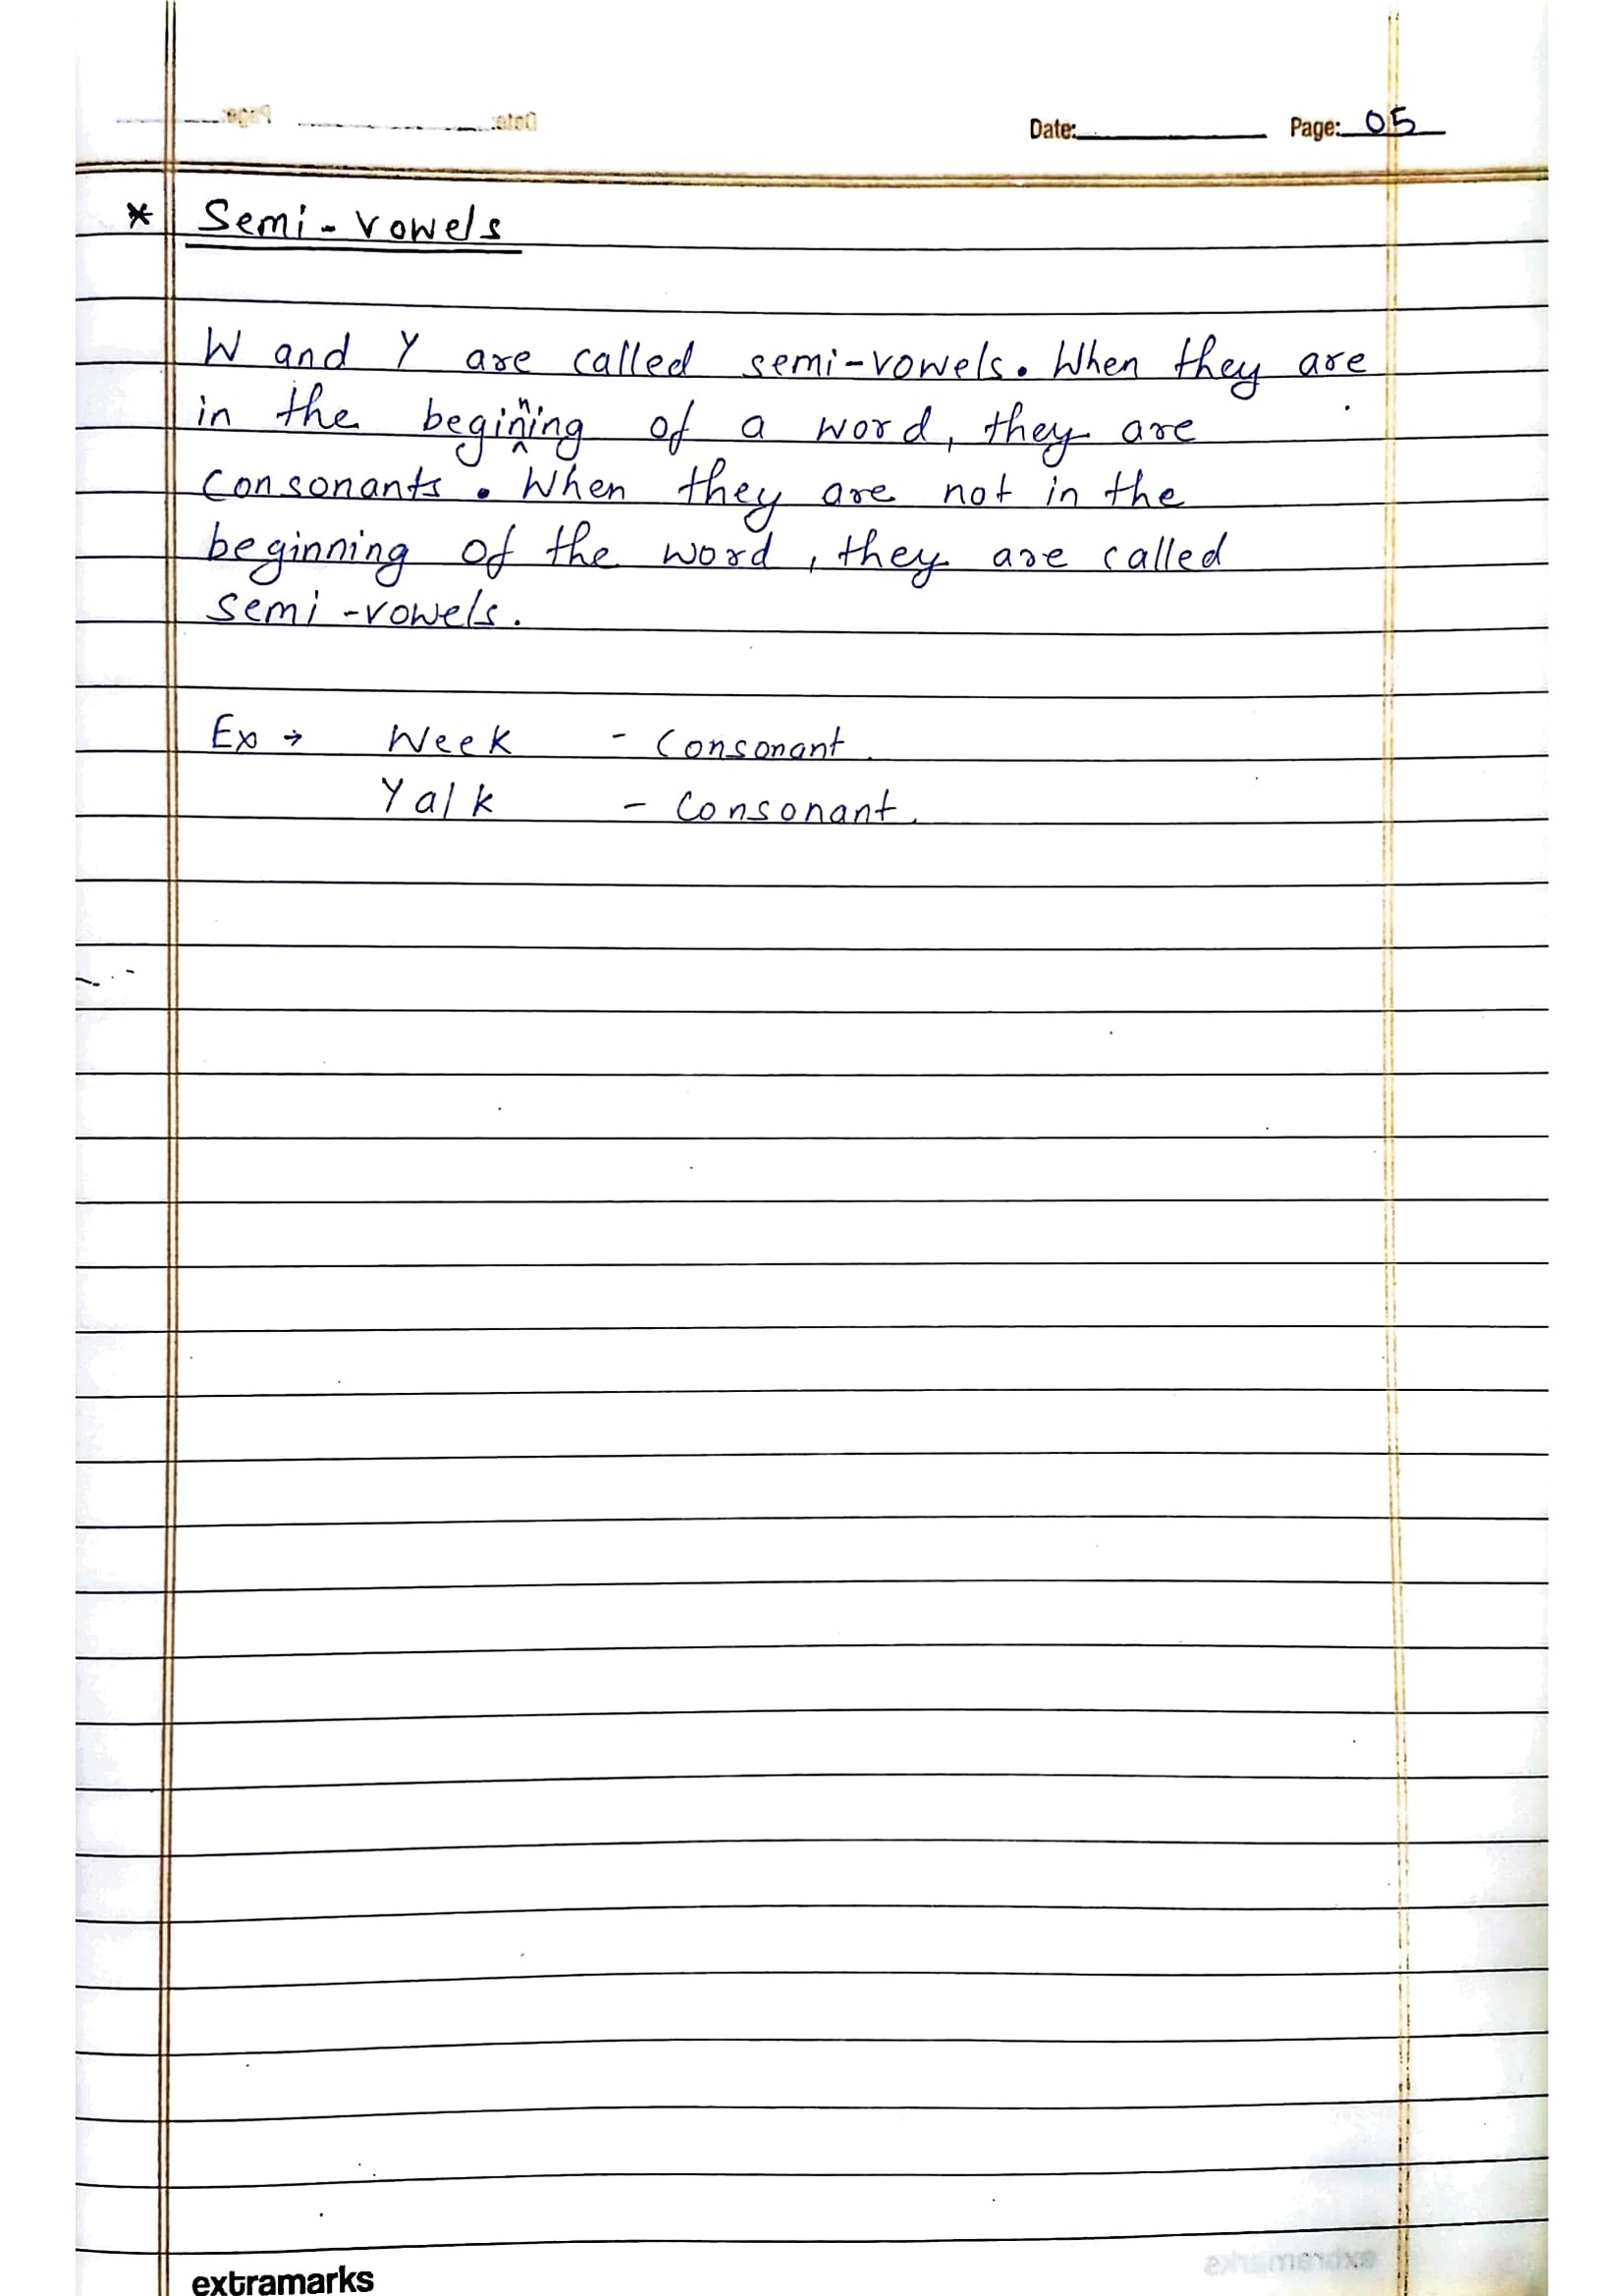 Date: Page: 05
* Semi-vowels
W and Y are called semi-vowels. When they are
in the beginning of a word, they are
consonants. When they are not in the
beginning of the word, they are called
semi-vowels.
Ex → Week - Consonant
Yalk - Consonant
extramarks